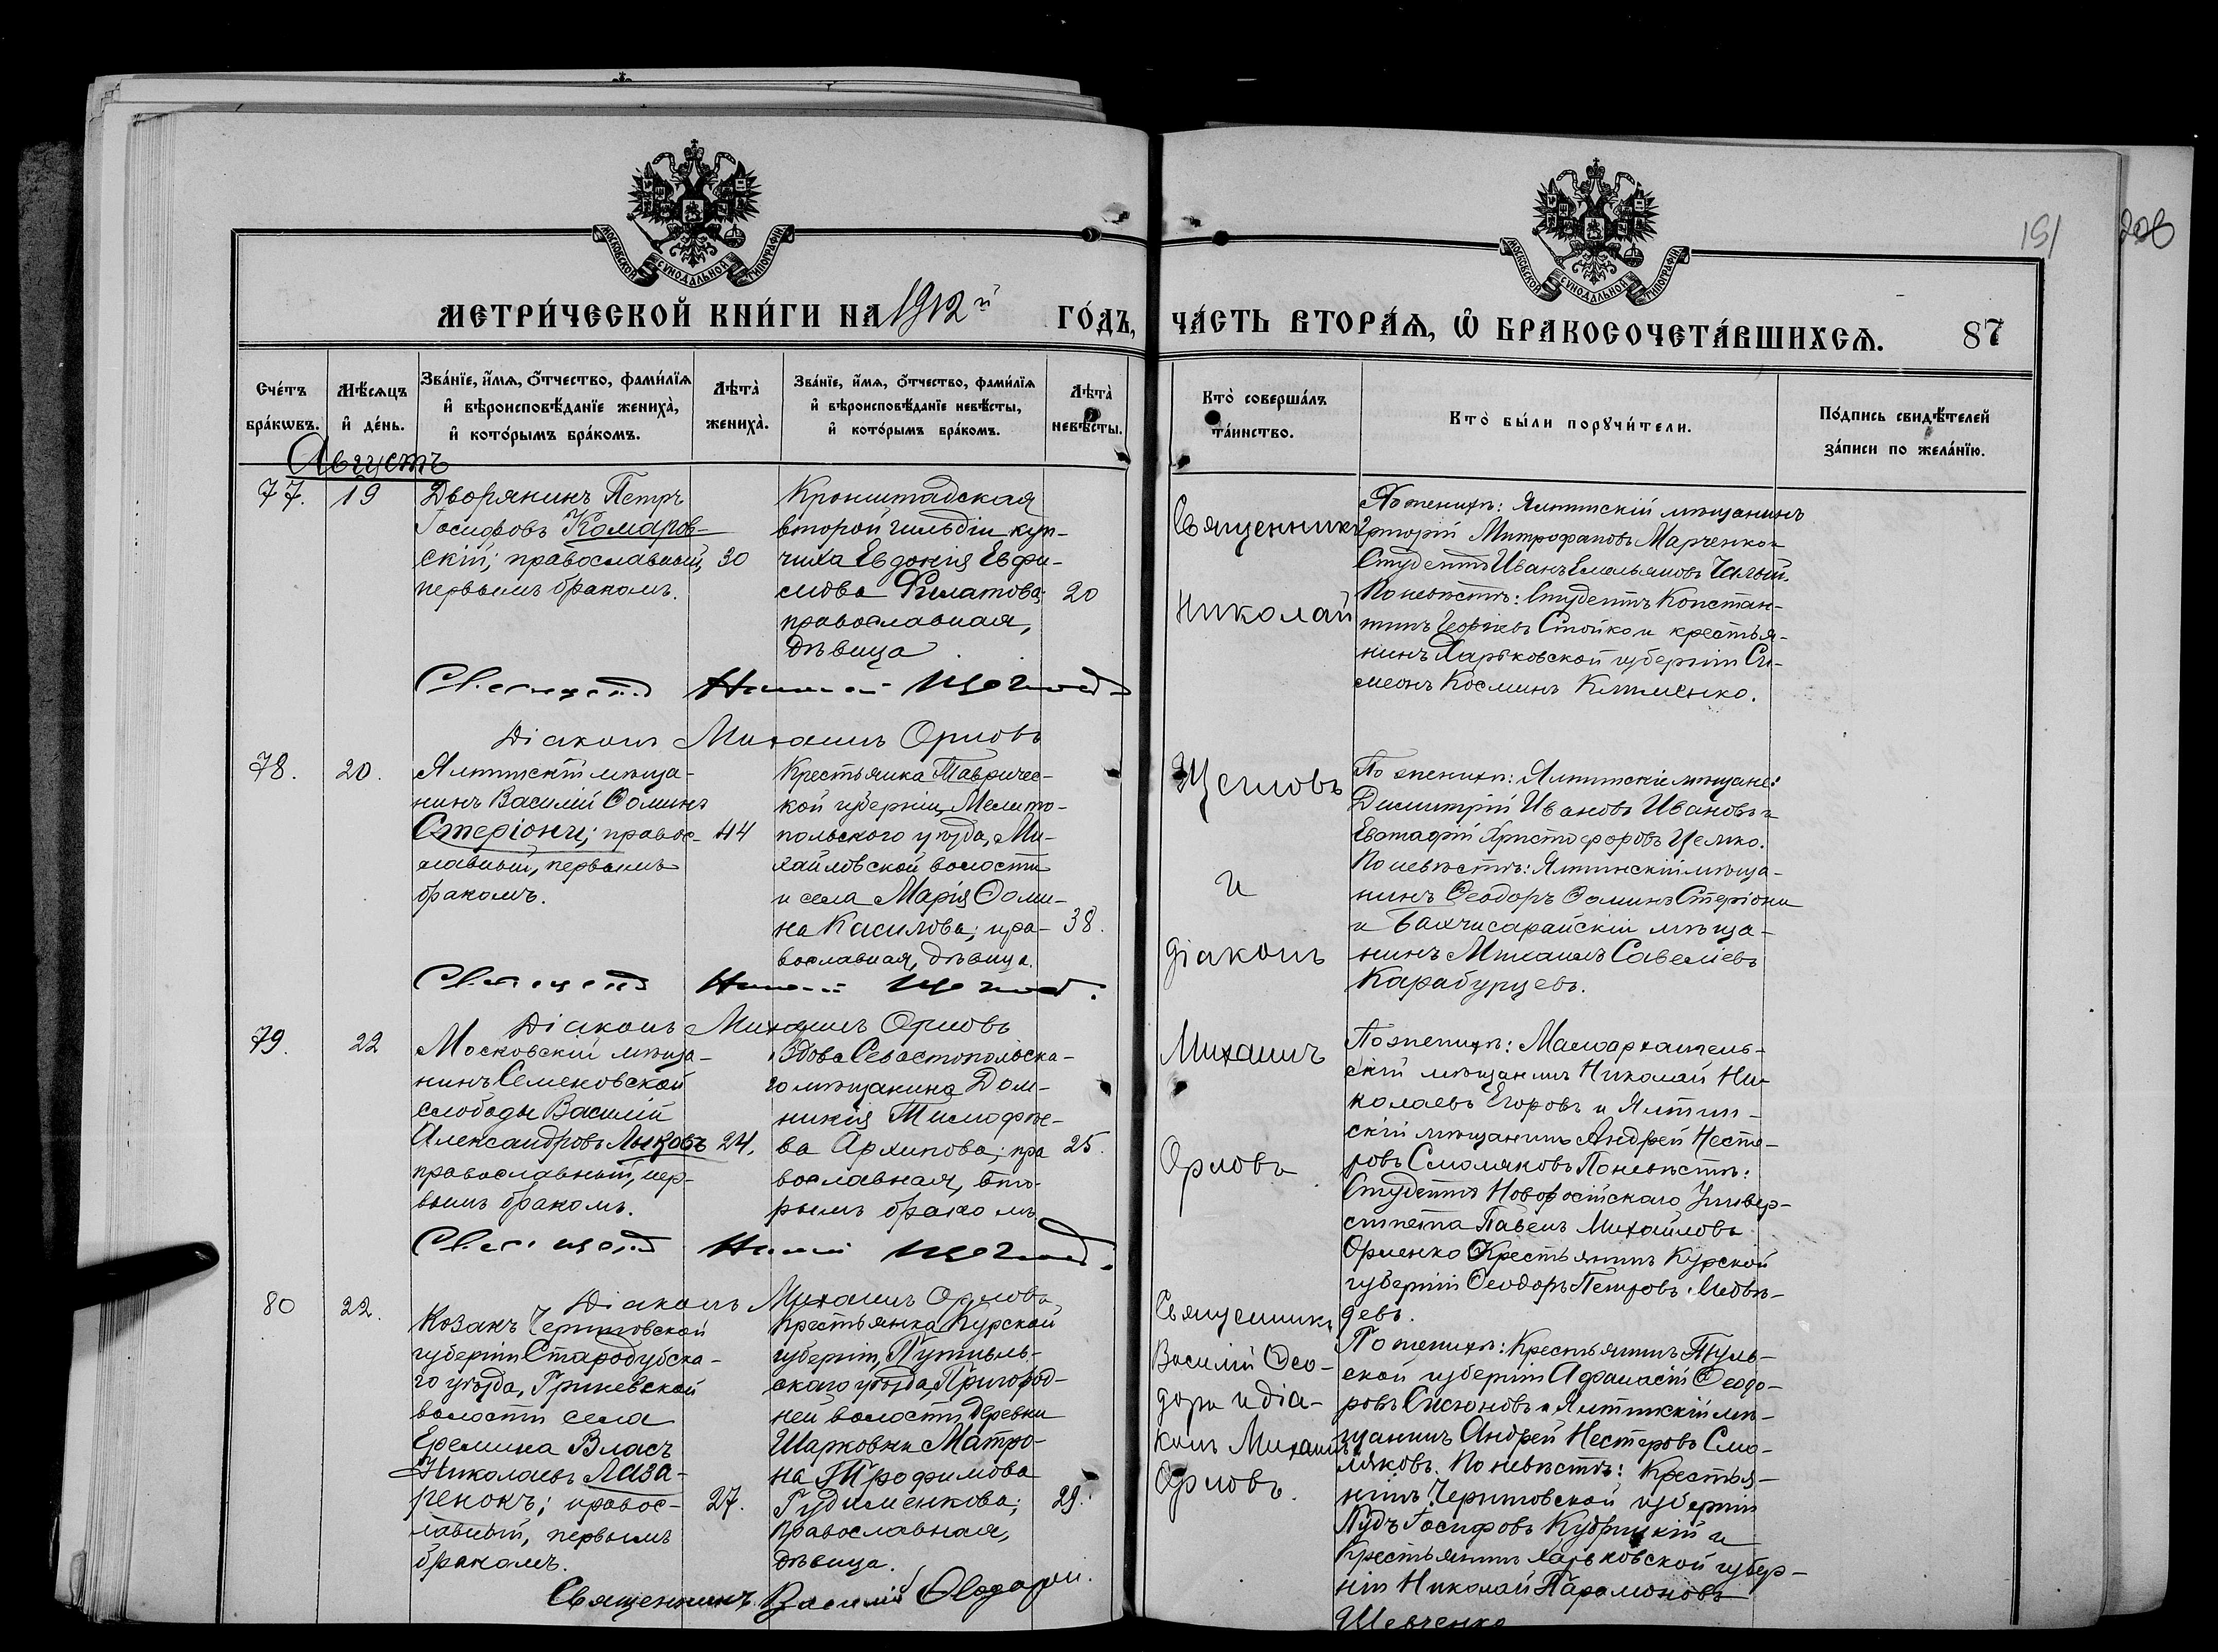 151
206
МОСКОВСКОЙ СѴНОДАЛЬНОЙ ТИПОГРАФІИ
МОСКОВСКОЙ СѴНОДАЛЬНОЙ ТИПОГРАФІИ
МЕТРИ́ЧЕСКОЙ КНИ́ГИ НА 1912й ГО́ДЪ,
ЧА́СТЬ ВТОРА́Ѧ, Ѽ БРАКОСОЧЕТА́ВШИХСѦ.
87
Сче́тъ
бра́кѡвъ.
Мѣ́сѧцъ
и҆ де́нь.
Зва́нїе, и҆́мѧ, ѻ҆́тчество, фами́лїѧ
и҆ вѣроисповѣ́данїе жениха̀,
и҆ кото́рымъ бра́комъ.
Лѣта̀
жениха̀.
Зва́нїе, и҆́мѧ, ѻ҆́тчество, фами́лїѧ
и҆ вѣроисповѣ́данїе невѣ́сты,
и҆ кото́рымъ бра́комъ.
Лѣта̀
невѣ́сты.
Кто̀ соверша́лъ
та́инство.
Кто̀ бы́ли порꙋчи́тели.
По́дпись свидѣ́телей
за́писи по жела́нїю.
Августъ
77.
19
Дворянинъ Петръ
Іосифовъ Комаров-
скій; православный,
первымъ бракомъ.
30
Кронштадская
второй гильдіи куп-
чиха Евдокія Евфи-
мова Филатова;
православная,
дѣвица
20
Священникъ
Николай
По женихѣ: Ялтинскій мѣщанинъ
Митрофановъ Марченко и
Студентъ Иванъ Емельяновъ
По невѣстѣ: Студентъ Констан-
тинъ Георгіевъ Стойко и крестья-
нинъ Харьковской губерніи Си-
меонъ Косминъ Клименко.
Священникъ Николай Щегловъ
Діаконъ Михаилъ Орловъ
78.
20.
Ялтинскій мѣща-
нинъ Василій Ѳоминъ
Стеріони; правос-
лавный, первымъ
бракомъ.
44
Крестьянка Тавричес-
кой губерніи, Мелито-
польскаго уѣзда, Ми-
хайловской волости
и села Марія Ѳоми-
на Касилова; пра-
вославная, дѣвица.
38.
Щегловъ
и
діаконъ
По женихѣ: Ялтинскіе мѣщане:
Димитрій Ивановъ Ивановъ и
Евстафій Христофоровъ
По невѣстѣ: Ялтинскій мѣща-
нинъ Ѳеодоръ Ѳоминъ Стеріони
и Бахчисарайскій мѣща-
нинъ Михаилъ Савеліевъ
Карабурцевъ.
Священникъ Николай Щегловъ.
Діаконъ Михаилъ Орловъ
79.
22
Московскій мѣща-
нинъ Семеновской
слободы Василій
Александровъ Лыковъ
православный, пер-
вымъ бракомъ.
24.
Вдова Севастопольска-
го мѣщанина Дом-
никія Тимофѣе-
ва Архипова; пра
вославная, вто-
рымъ бракомъ
25.
Михаилъ
Орловъ
По женихѣ: Малоархангель-
скій мѣщанинъ Николай Ни-
колаевъ Егоровъ и Ялтин-
скій мѣщанинъ Андрей Несте-
ровъ Смоляковъ По невѣстѣ:
Студентъ Новоросійскаго Универ-
ситета Павелъ Михайловъ
Орленко Крестьянинъ Курской
губерніи Ѳеодоръ Петровъ
девъ.
Священникъ Николай Щегловъ.
Діаконъ Михаилъ Орловъ
80
22.
Козакъ Черниговской
губерніи Стародубска-
го уѣзда, Гриневской
волости села
Еремина Власъ
Николаевъ Лаза-
ренокъ; правос-
лавный, первымъ
бракомъ.
27.
Крестьянка Курской
губерніи, Путивль-
скаго уѣзда, Пригород-
ней волости, деревни
Шарковки Матро-
на Трофимова
Гудименкова;
православная,
дѣвица.
29.
Священникъ
Василій Ѳео-
дори и діа-
конъ Михаилъ
Орловъ.
По женихѣ: Крестьянинъ Туль-
ской губерніи Афанасій Ѳеодо-
ровъ Сисюновъ и Ялтинскій мѣ-
щанинъ Андрей Нестеровъ Смо-
ляковъ. По невѣстѣ: Крестья-
нинъ Черниговской губерніи
Іосифовъ Кубрицкій и
Крестьянинъ Харьковской губер-
ніи Николай Парамоновъ
Шевченко
Священникъ Василій Ѳеодори.